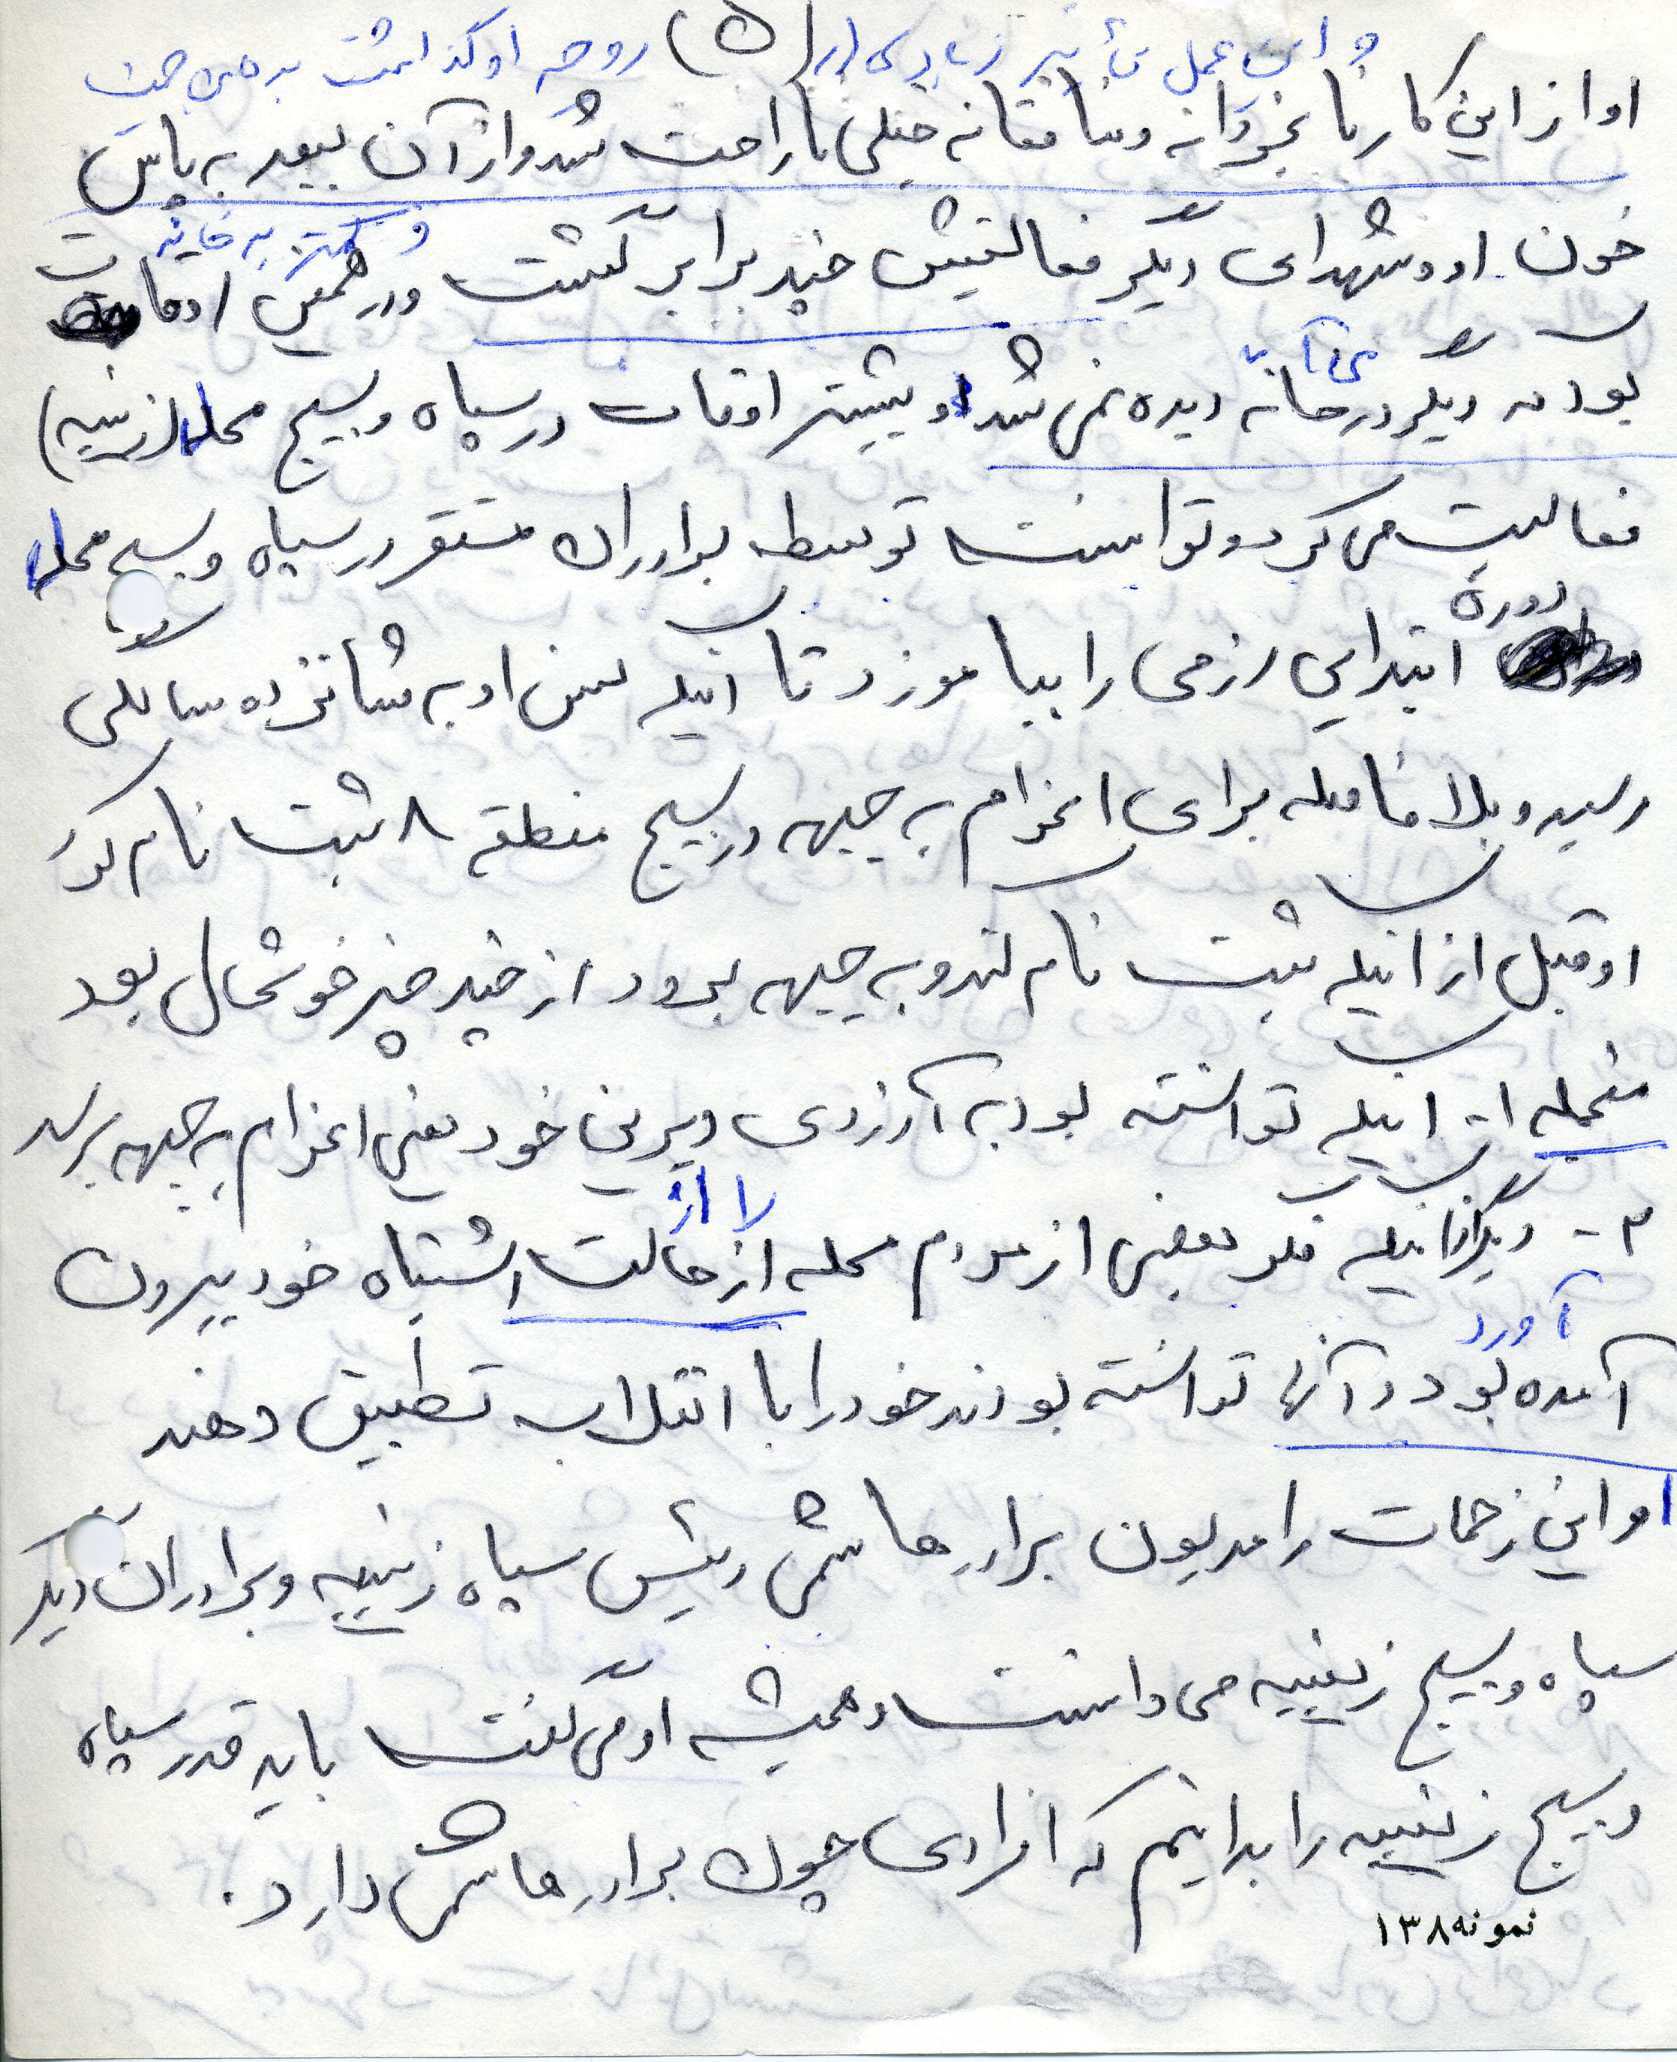 (۵)
و این عمل تأثیر زیادی در روحیه او گذاشت به همین جهت
او از این کار نابخردانه و منافقانه خیلی ناراحت شد و از آن ببعد به پاس
خون او و شهدای دیگر فعالیتش چند برابر گشت و در همین اوقات
و کمتر به خانه
می‌آمد
بود که دیگر در خانه دیده نمی شد او بیشتر اوقات در سپاه و بسیج محله (زینبیه)
فعالیت می کرد و توانست توسط برادران مستقر در سپاه و بسیج محله
دوره
ابتدایی رزمی را بیاموزد تا اینکه سن او به شانزده سالگی
رسید و بلافاصله برای اعزام به جبهه در بسیج منطقه ۸ ثبت نام کرد
او قبل از اینکه ثبت نام کند و به جبهه برود از چند چیز خوشحال بود
منجمله ۱- اینکه توانسته بود به آرزوی دیرین خود یعنی اعزام به جبهه برسد
را از
۲- دیگر اینکه فکر بعضی از مردم محله از حالت اشتباه خود بیرون
آورد
آمده بود و آنها توانسته بودند خود را با انقلاب تطبیق دهند
او این زحمات را مدیون برادر هاشمی رئیس سپاه زینبیه و برادران دیگر
سپاه و بسیج زینبیه می دانست و همیشه او می گفت باید قدر سپاه
و بسیج زینبیه را بدانیم که افرادی چون برادر هاشمی دارد.
نمونه ۱۳۸